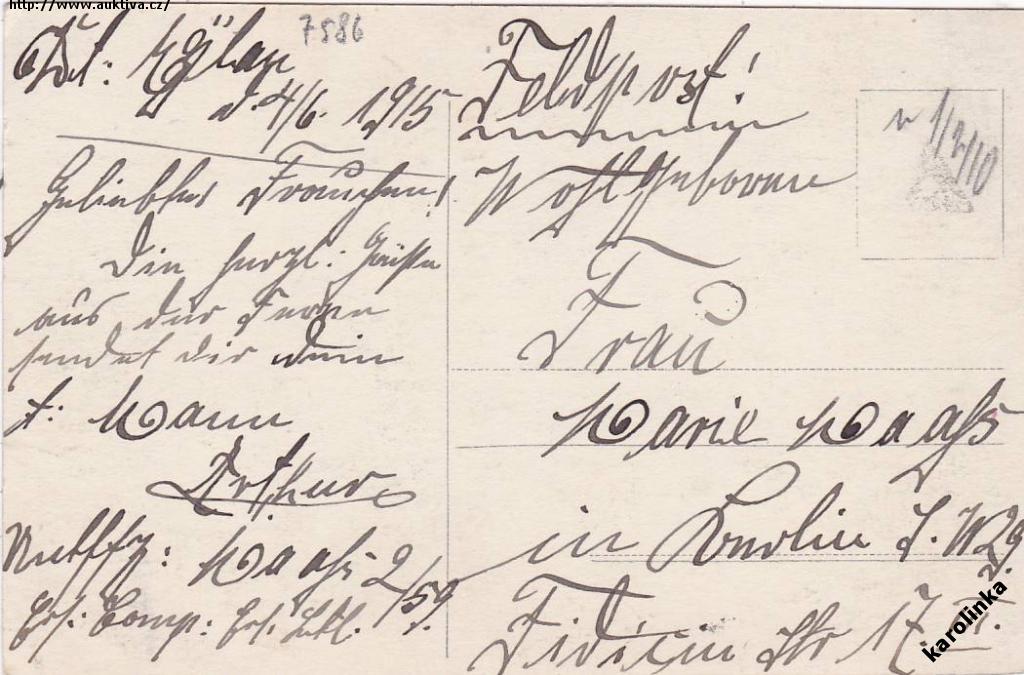 http://www.auktiva.cz/
7586
Dt: Eylau
d. 4/6. 1915
Geliebtes Frauchen!
Die herzl: Grüße
aus der Ferne
sendet dir dein
t: Mann
Arthur
Maaß 2/59.
Ers: Comp: Ers: Batl.
Feldpost!
Wohlgeboren
Frau
Marie Maaß
in Berlin S. W 29
Fidicin Str 17.
v 1/2/10
karolinka